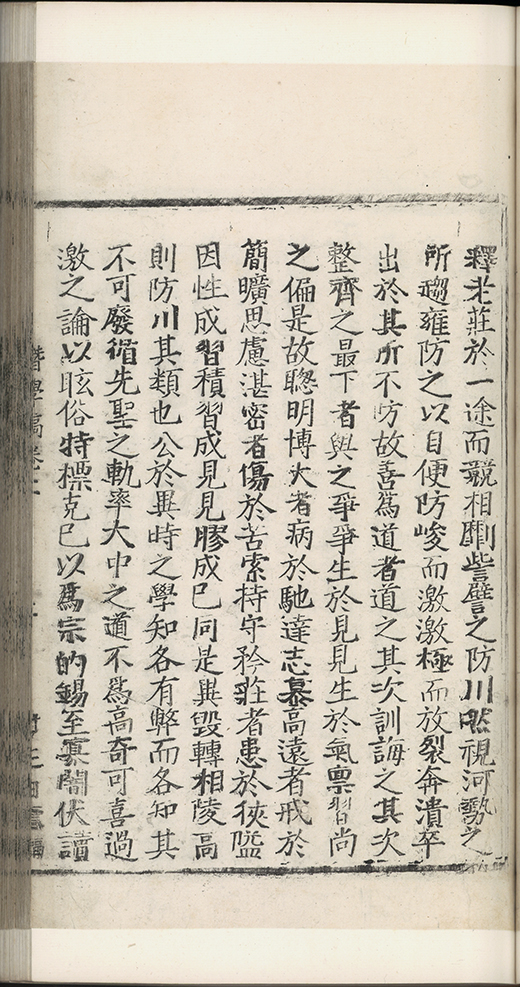 釋老莊於一途而競相劘訾譬之防川然視河勢之
所趨雍防之以自便防峻而激激極而放裂奔潰卒
出於其所不防故善爲道者道之其次訓誨之其次
整齊之最下者與之爭爭生於見見生於氣禀習尚
之偏是故聰明博大者病於馳達志慕高遠者戒於
簡曠思慮湛密者傷於苦索持守矜莊者患於狹隘
因性成習積習成見見膠成已同是異毀轉相陵高
則防川其類也公於異時之學知各有弊而各知其
不可廢循先聖之軌率大中之道不爲高奇可喜過
激之論以眩俗特標克已以爲宗的錫至寡闇伏讀